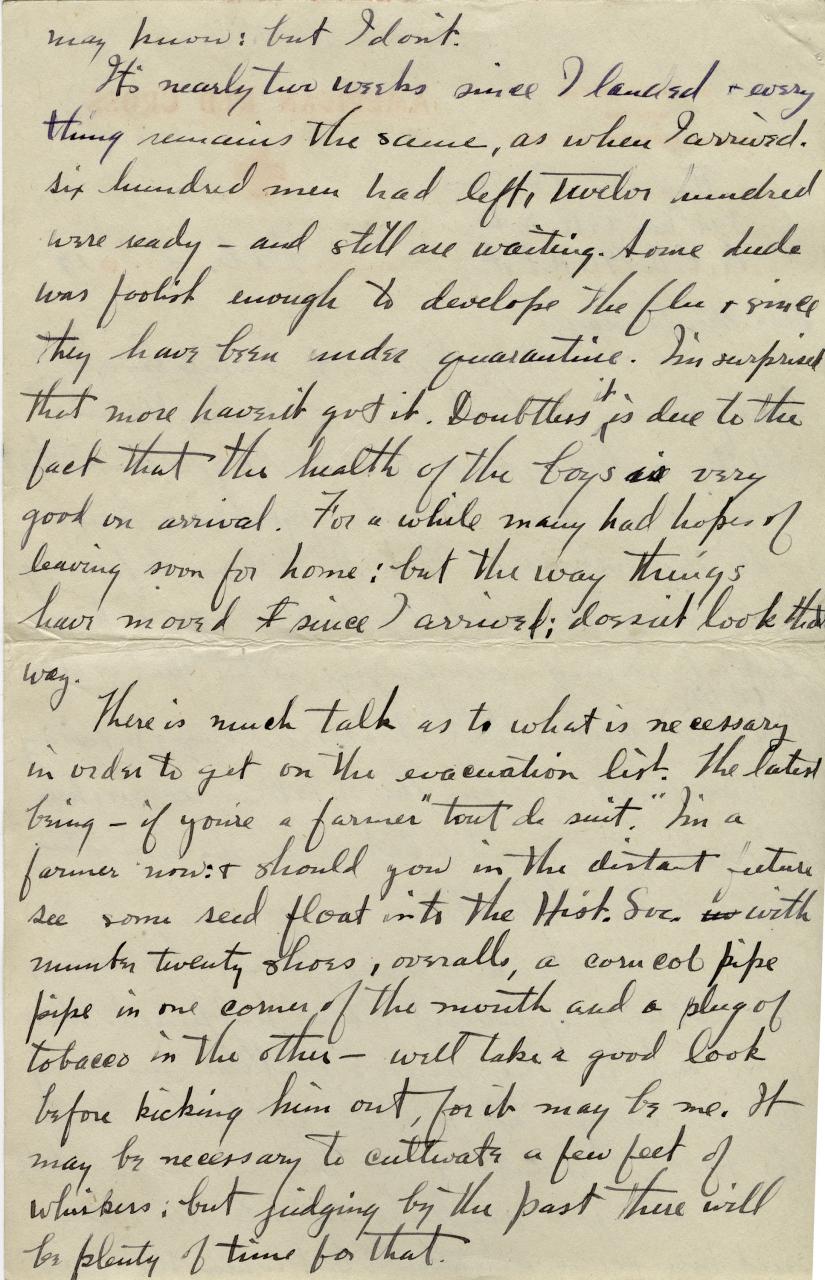 may know: but I don't.
It's nearly two weeks since I landed + every
thing remains the same, as when I arrived.
six hundred men had left, Twelve hundred
were ready – and still are waiting. Some dude
was foolish enough to develope the flu + since
they have been under quarantine. I'm surprised
that more haven't got it. Doubtless it is due to the
fact that the health of the boys is very
good on arrival. For a while many had hopes of
leaving soon for home: but the way things
have moved since I arrived; doesn't look that
way.
There is much talk as to what is necessary
in order to get on the evacuation list. The latest
being – if you're a farmer "tout de suit." I'm a
farmer now: + should you in the distant future
see some seed float into the Hist. Soc. in with
number twenty shoes, overalls, a corn cob pipe
pipe in one corner of the mouth and a plug of
tobacco in the other – well take a good look
before kicking him out, for it may be me. It
may be necessary to cultivate a few feet of
whiskers; but judging by the past there will
be plenty of time for that.